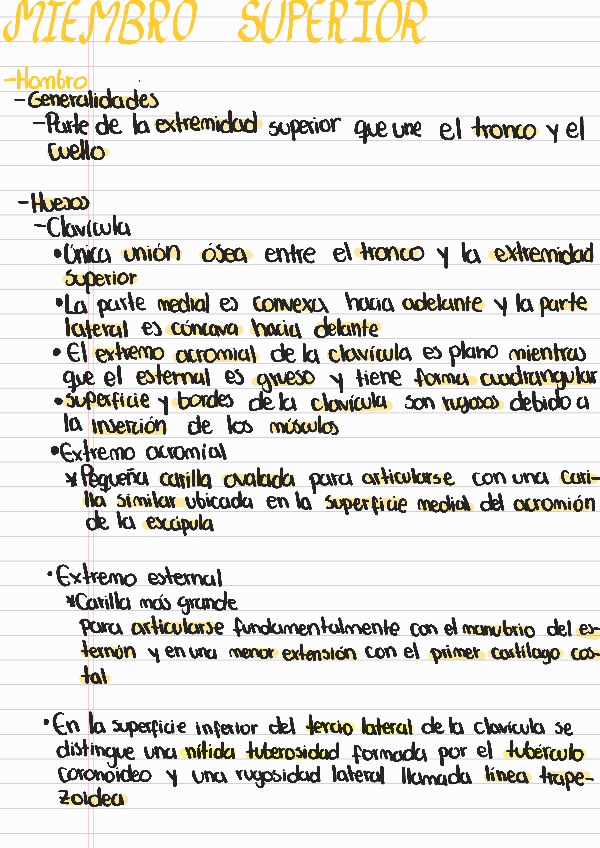 MIEMBRO SUPERIOR
-Hombro
-Generalidades
-Parte de la extremidad superior que une el tronco y el
cuello
-Huesos
-Clavícula
•Única unión ósea entre el tronco y la extremidad
superior
•La parte medial es convexa hacia adelante y la parte
lateral es cóncava hacia delante
•El extremo acromial de la clavícula es plano mientras
que el esternal es grueso y tiene forma cuadrangular
•Superficie y bordes de la clavícula son rugosos debido a
la inserción de los músculos
•Extremo acromial
*Pequeña carilla ovalada para articularse con una cari-
lla similar ubicada en la superficie medial del acromión
de la escápula
•Extremo esternal
*Carilla más grande
para articularse fundamentalmente con el manubrio del es-
ternón y en una menor extensión con el primer cartílago cos-
tal
•En la superficie inferior del tercio lateral de la clavícula se
distingue una nítida tuberosidad formada por el tubérculo
coronoideo y una rugosidad lateral llamada línea trape-
zoidea